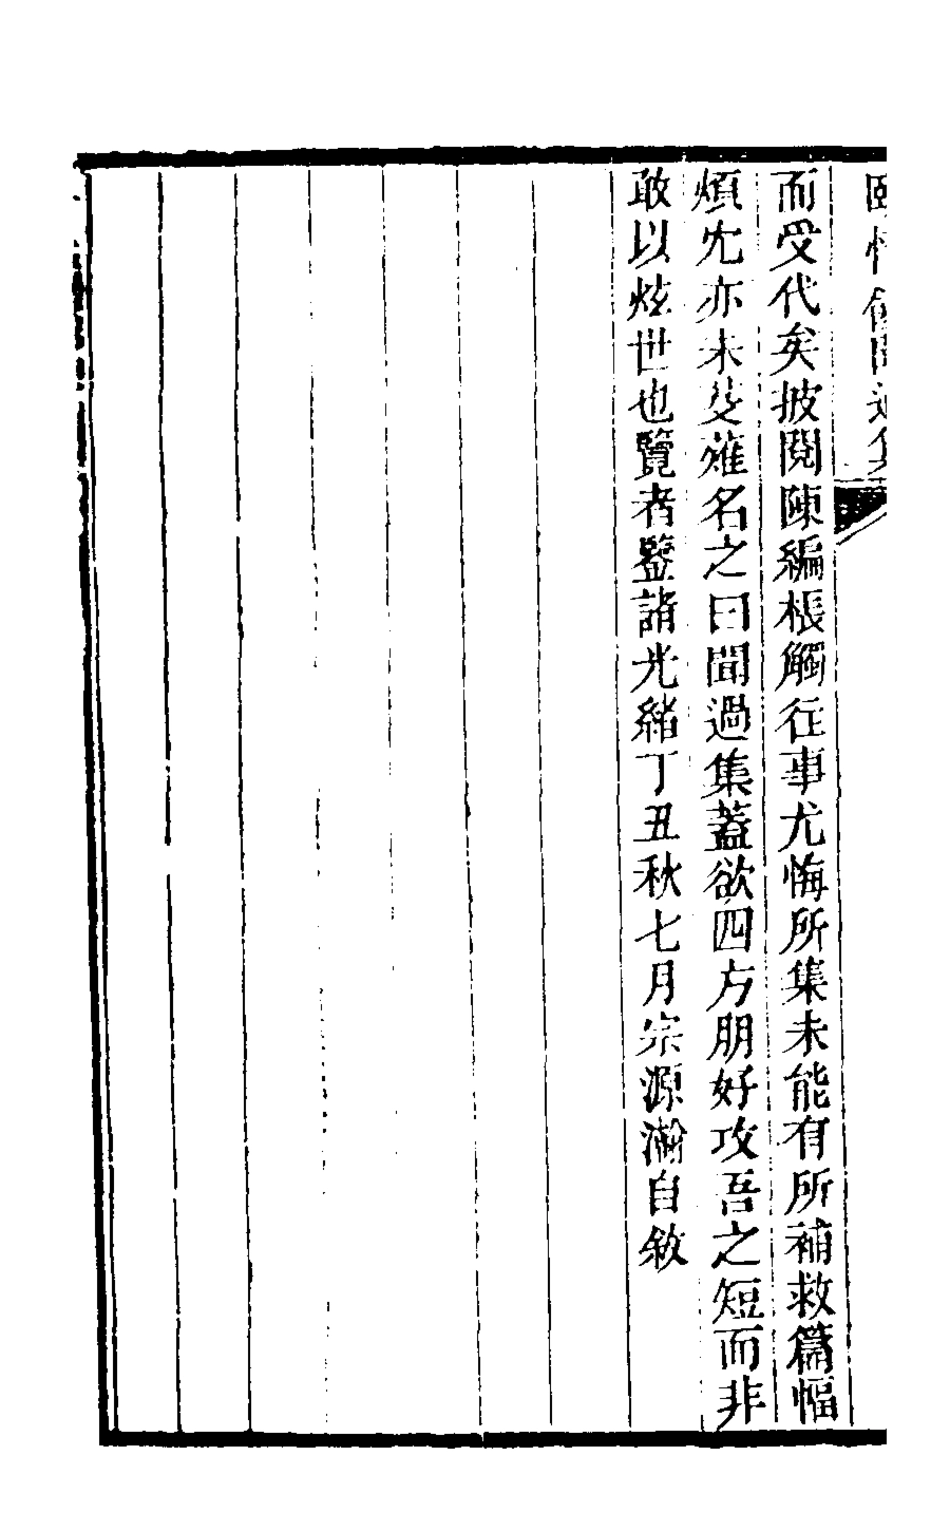 頤情館聞過集
而受代矣披閱陳編棖觸往事尤悔所集未能有所補救篇幅
煩冗亦未芟薙名之曰聞過集蓋欲四方朋好攻吾之短而非
敢以炫世也覽者鑒諸光緒丁丑秋七月宗源瀚自敘